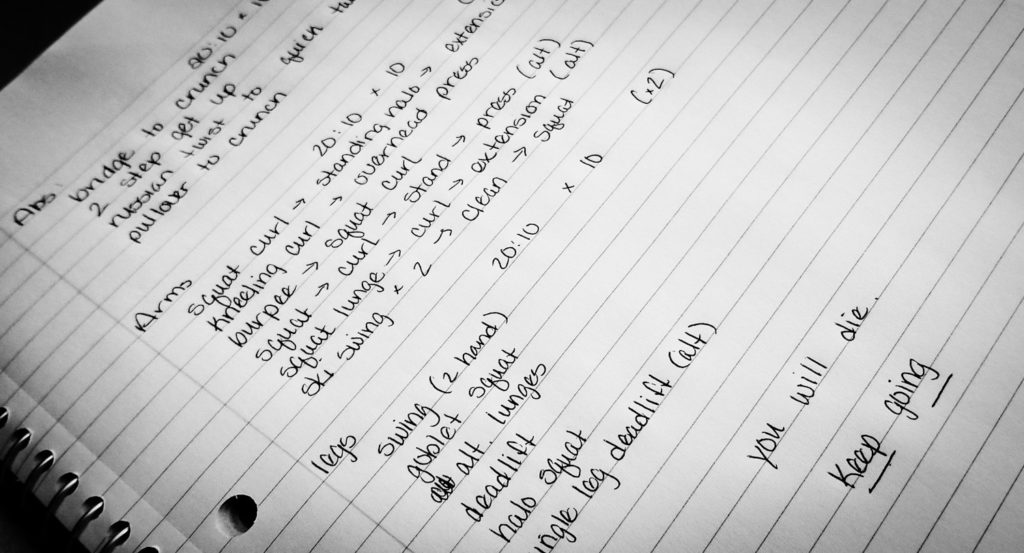 Abs: 20:10 x 10
bridge to crunch
2 step get up
russian twist to quick
pullover to crunch
Arms 20:10 x 10
squat curl → standing halo → extension
kneeling curl → overhead press
burpee → squat curl
squat → curl → stand → press (alt)
squat lunge → curl → extension (alt)
ski swing x 2 → clean → squat
legs 20:10 x 10 (x2)
swing (2 hand)
goblet squat
alt. lunges
deadlift
halo squat
single leg deadlift (alt)
you will die.
Keep going